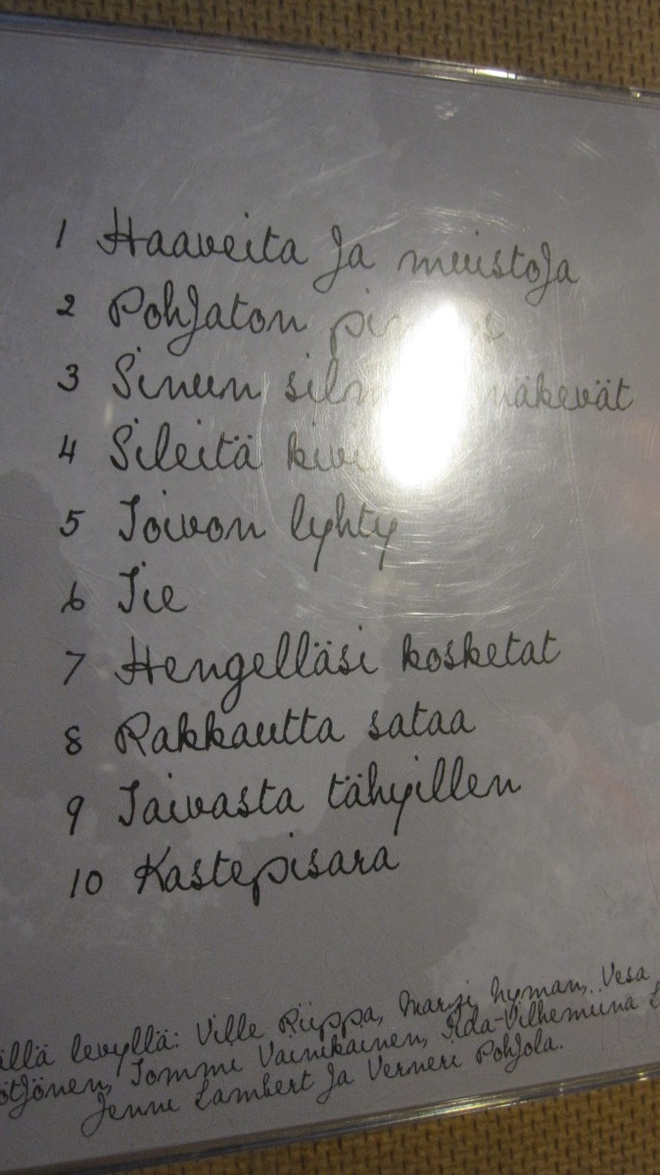 1 Haaveita ja muistoja
2 Pohjaton
3 Sinun näkevät
4 Sileitä
5 Toivon lyhty
6 Tie
7 Hengelläsi kosketat
8 Rakkautta sataa
9 Taivasta tähyillen
10 Kastepisara
levyllä: Ville Riippa, Marzi Nyman, Vesa
Tommi Vainikainen, Iida-Vilhemiina
Jenni Lambert ja Verneri Pohjola.